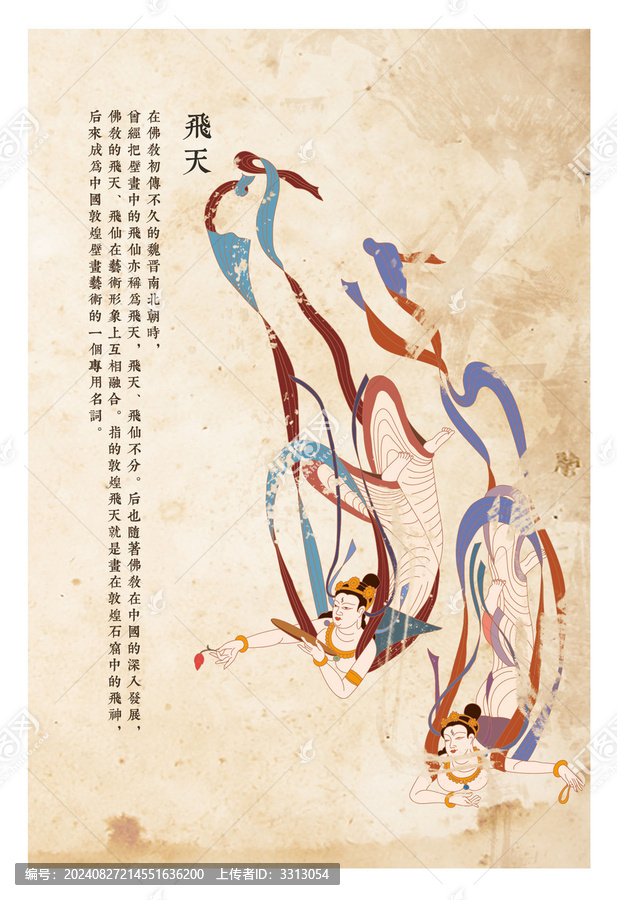 飛天
在佛敎初傳不久的魏晋南北朝時，
曾經把壁畫中的飛仙亦稱爲飛天，飛天、飛仙不分。后也隨著佛敎在中國的深入發展，
佛敎的飛天、飛仙在藝術形象上互相融合。指的敦煌飛天就是畫在敦煌石窟中的飛神，
后來成爲中國敦煌壁畫藝術的一個專用名詞。
编号：20240827214551636200 上传者ID：3313054